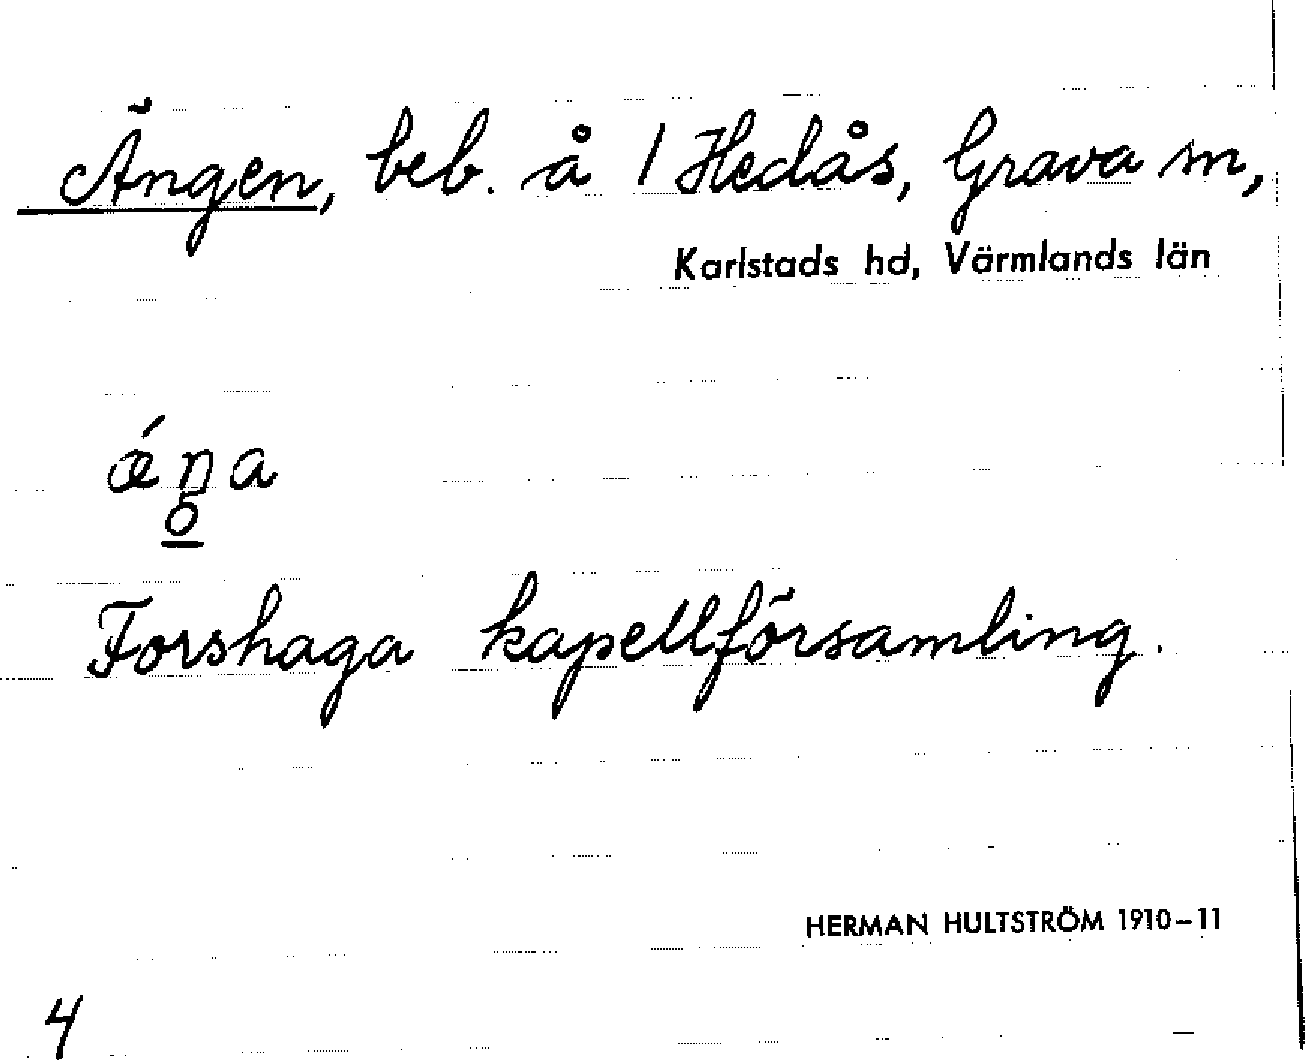 Ängen, beb. å 1 Hedås, Grava sn,
Karlstads hd, Värmlands län
ǽŋa
o
Forshaga kapellförsamling.
HERMAN HULTSTRÖM 1910-11
4